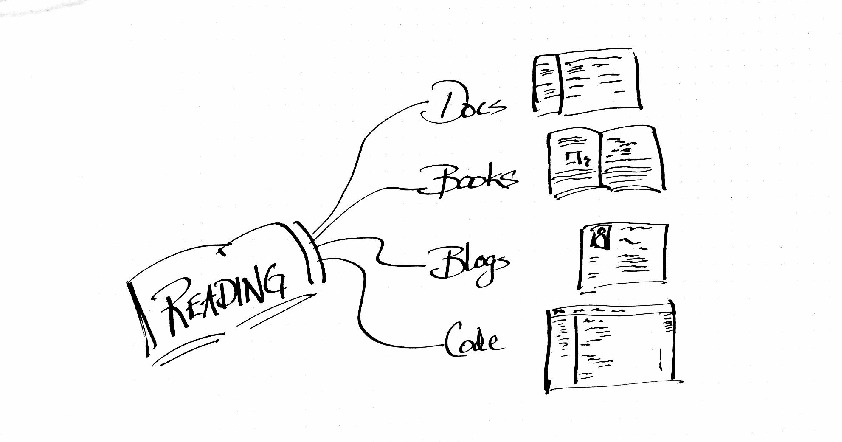 READING
Docs
Books
Blogs
Code